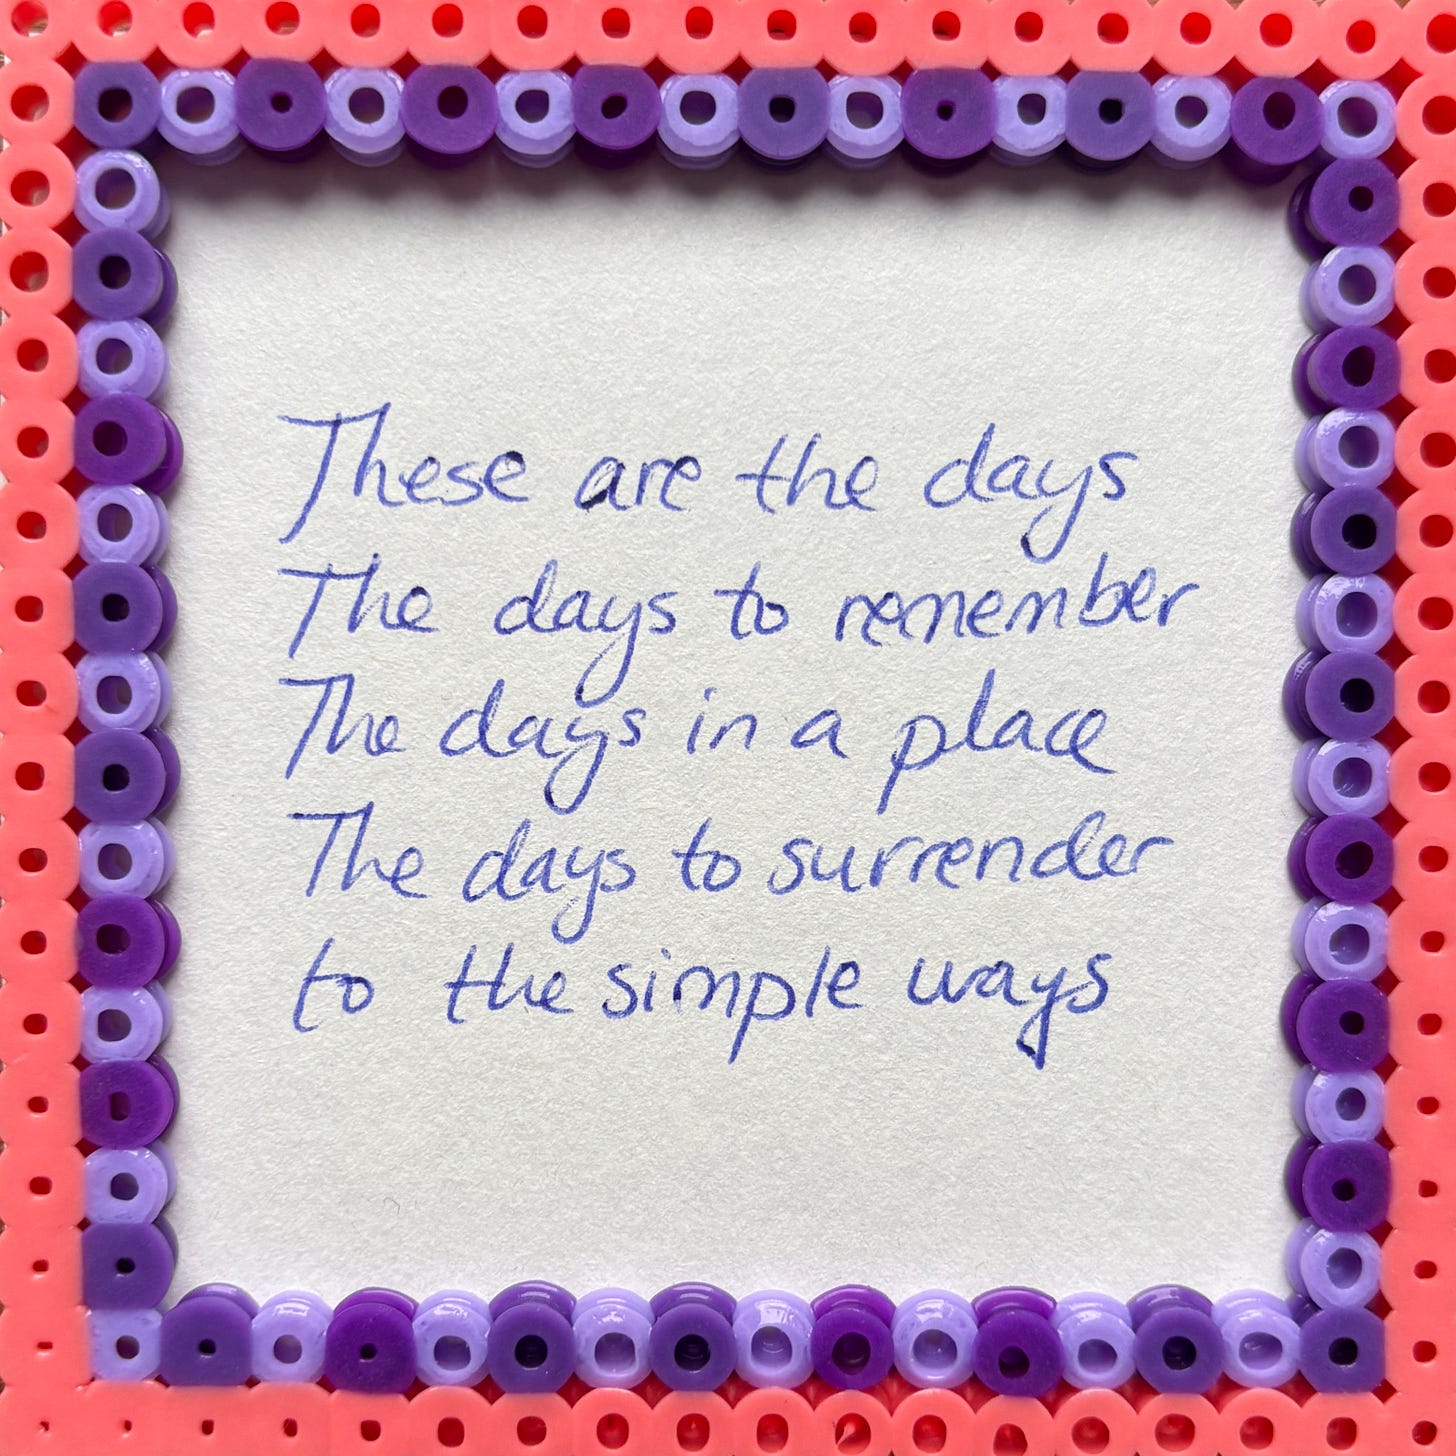 These are the days
The days to remember
The days in a place
The days to surrender
to the simple ways